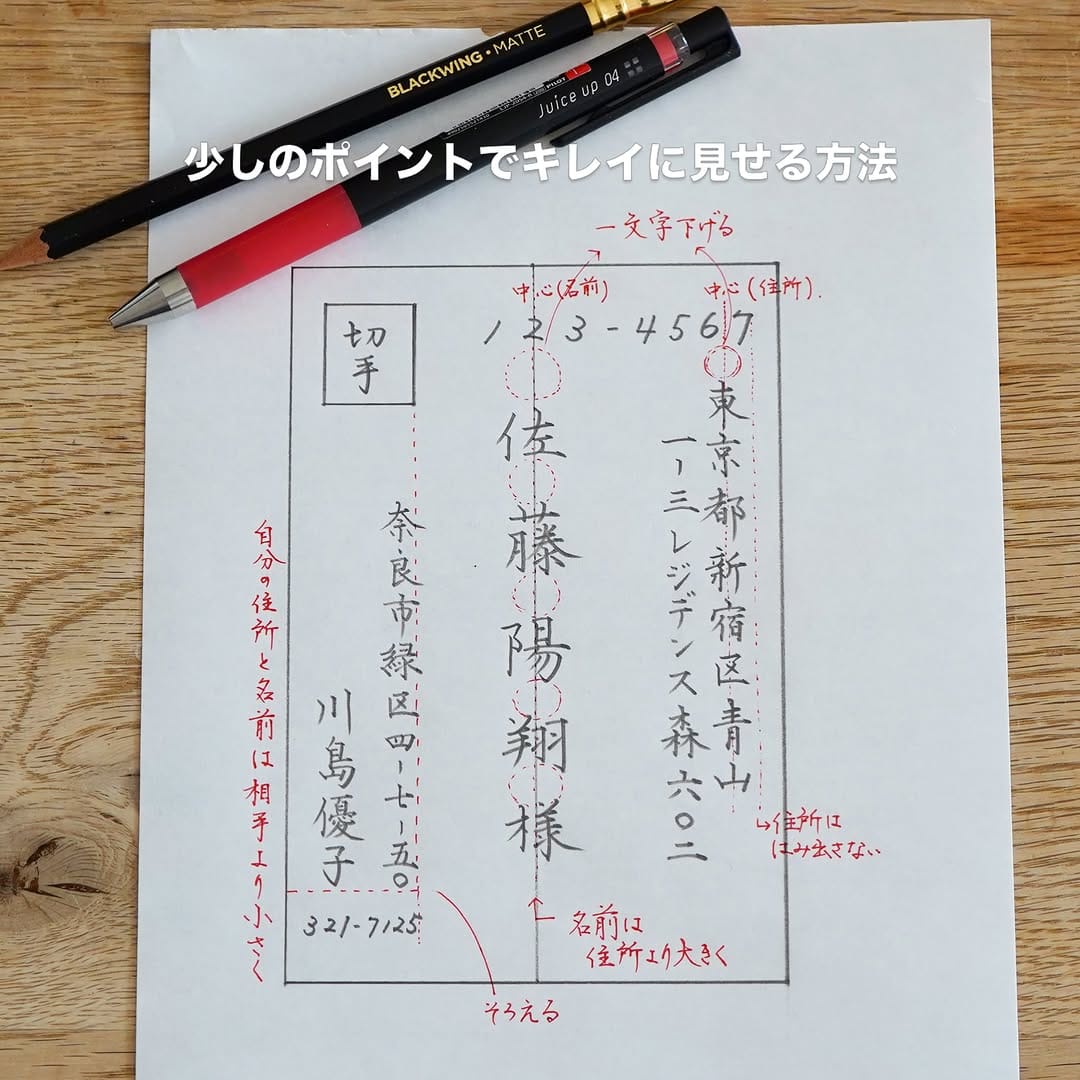 BLACKWING・MATTE
Juice up 04
PILOT
少しのポイントでキレイに見せる方法
一文字下げる
中心(名前)
中心(住所).
123-4567
切手
東京都新宿区青山
一-三レジデンス森六〇二
佐藤陽翔様
奈良市緑区四-七-五〇
川島優子
321-7125
自分の住所と名前は相手より小さく
住所は
はみ出さない
名前は
住所より大きく
そろえる